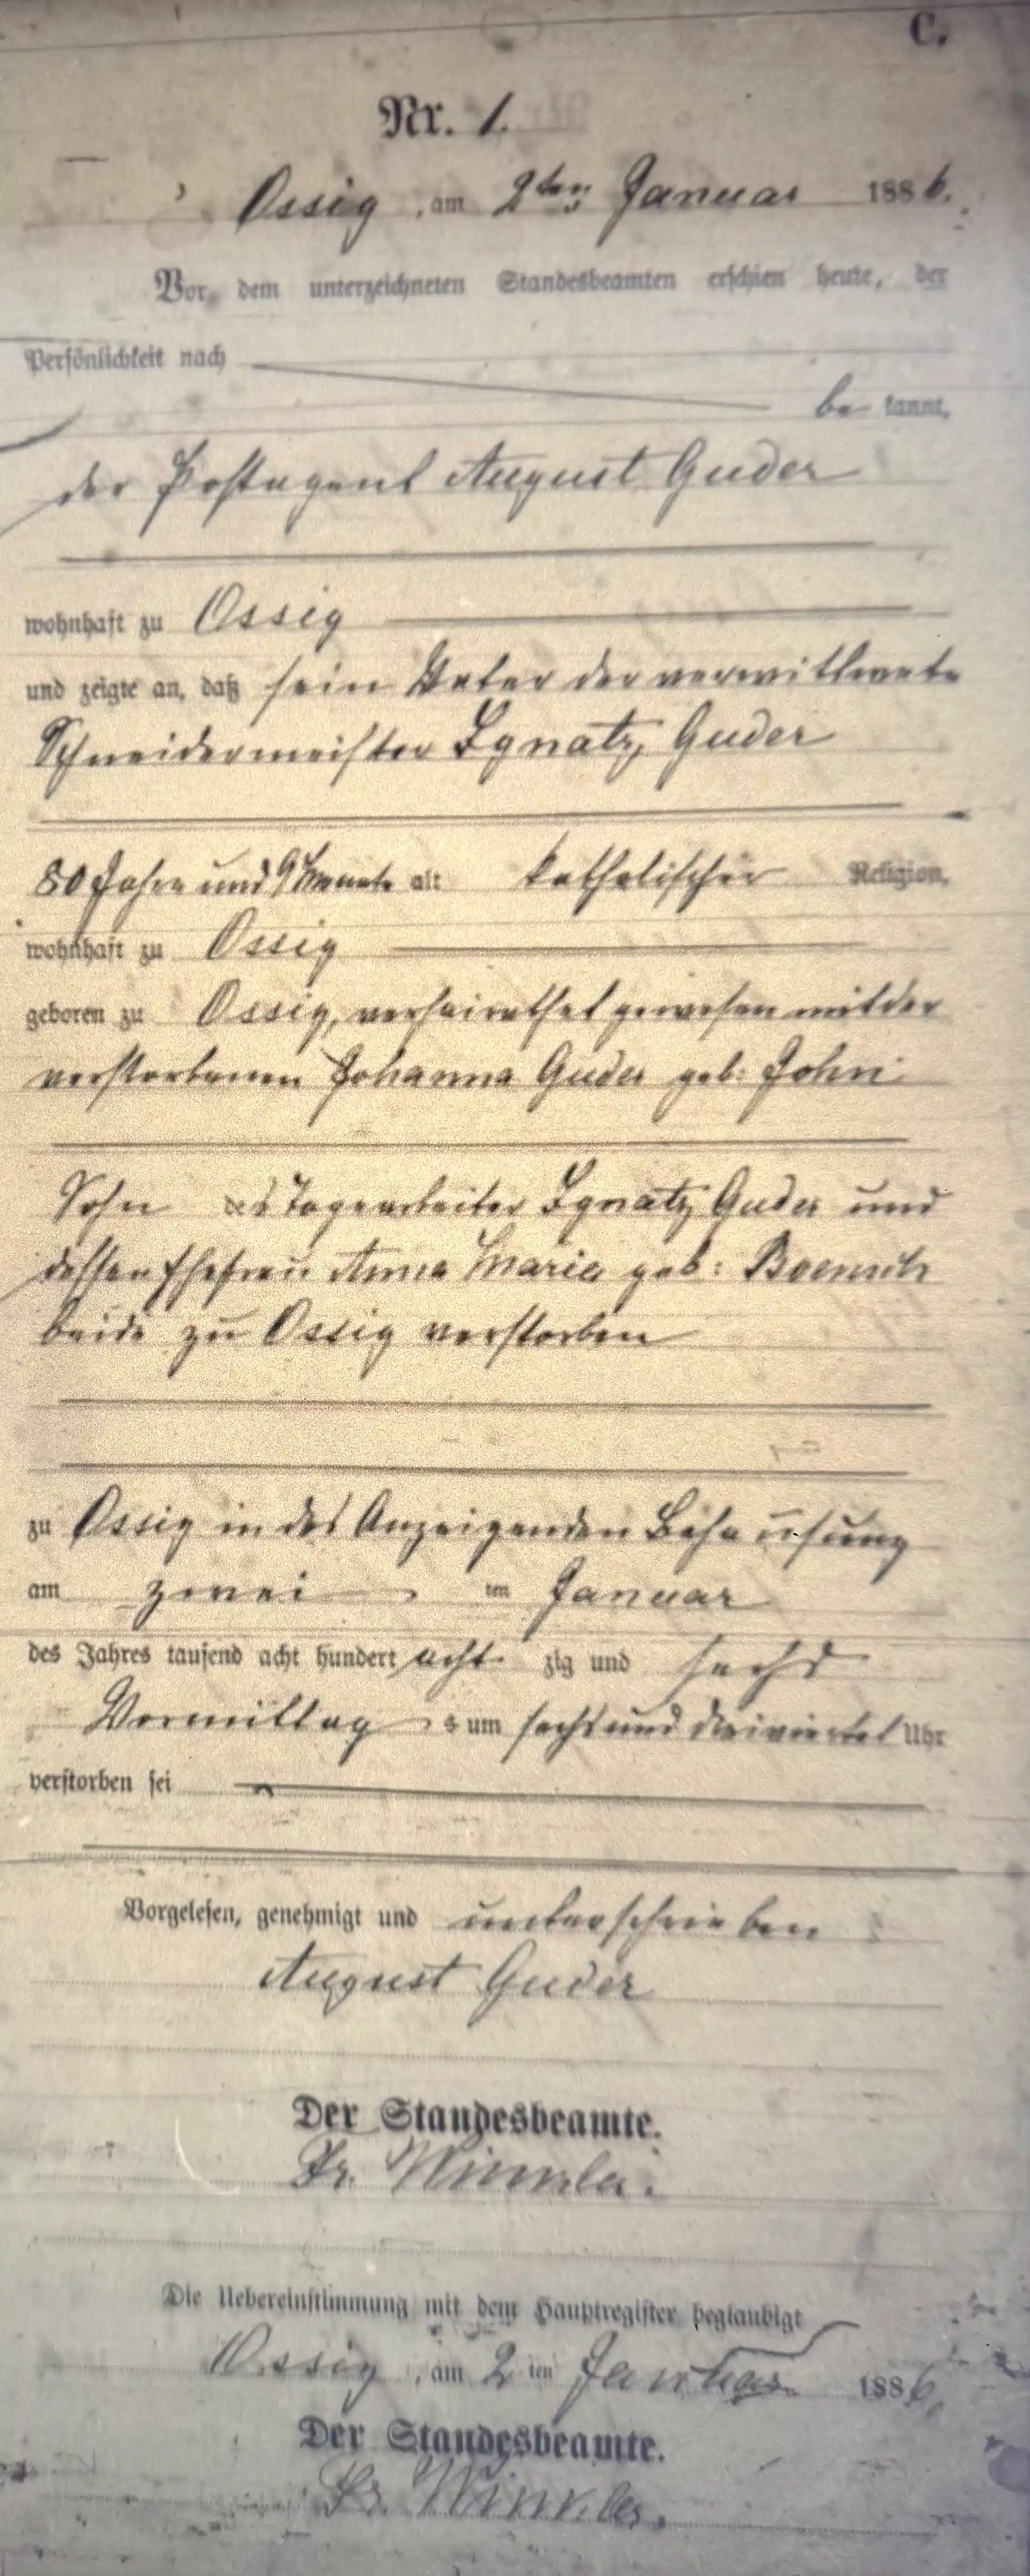 C.
Nr. 1.
Ossig, am 2ten Januar 1886.
Vor dem unterzeichneten Standesbeamten erschien heute, der
Persönlichkeit nach
bekannt,
der Postagent August Guder
wohnhaft zu Ossig
und zeigte an, daß sein Vater der verwittwete
Schneidermeister Ignatz Guder
80 Jahre und 9 Monate alt katholischer Religion,
wohnhaft zu Ossig
geboren zu Ossig, verheirathet gewesen mit der
verstorbenen Johanna Guder geb: John
Sohn des Tagearbeiter Ignatz Guder und
dessen Ehefrau Anna Maria geb:
beide zu Ossig verstorben
zu Ossig in des Anzeigenden Behausung
am zwei ten Januar
des Jahres tausend acht hundert achtzig und sechs
Vormittags um sechs und dreiviertel Uhr
verstorben sei
Vorgelesen, genehmigt und unterschrieben
August Guder
Der Standesbeamte.
Fr. Winkler.
Die Uebereinstimmung mit dem Hauptregister beglaubigt
Ossig, am 2ten Januar 1886.
Der Standesbeamte.
Fr. Winkler.